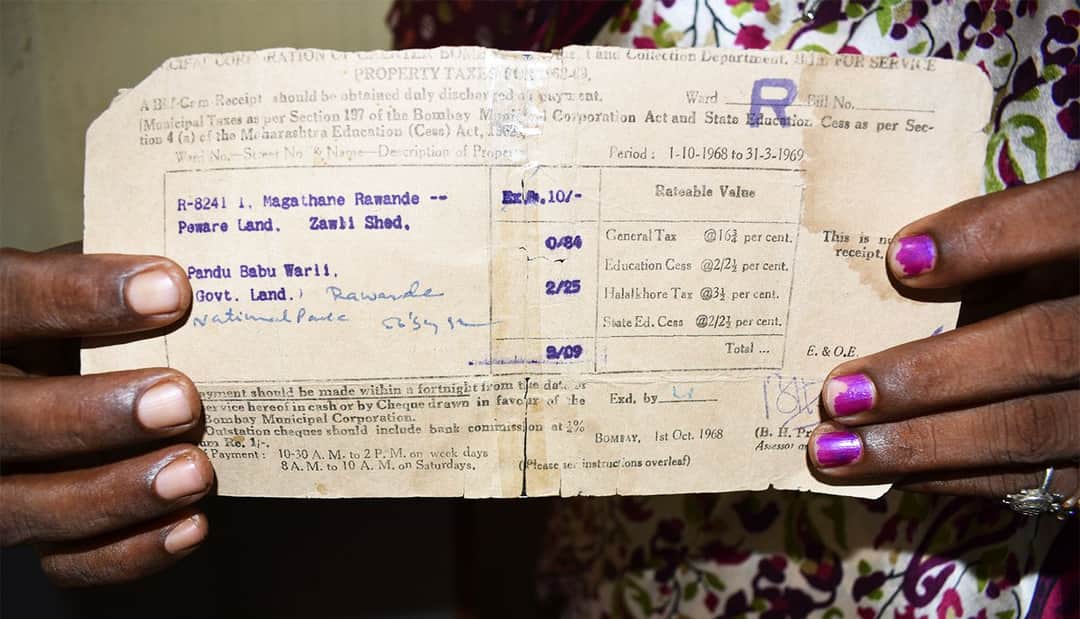 CIPAL CORPORATION OF GREATER BOMB and Collection Department. BILL FOR SERVICE
PROPERTY TAXES FOR 1968-69,
A Bill-Cum Receipt should be obtained duly discharged on payment. Ward R Bill No.
[Municipal Taxes as per Section 197 of the Bombay Municipal Corporation Act and State Education Cess as per Sec-
tion 4 (a) of the Maharashtra Education (Cess) Act, 1962,
Ward No.—Street No. & Name—Description of Prope Period : 1-10-1968 to 31-3-1969
R-8241 1, Magathane Rawande -- .10/- Rateable Value
Peware Land. Zawli Shed,
0/84 General Tax @16¾ per cent. This is no
receipt.
Pandu Babu Warli, Education Cess @2/2½ per cent.
Govt. Land.) Rawande 2/25 Halalkhore Tax @3½ per cent.
National Park State Ed. Cess @2/2½ per cent.
/09 Total ... E. & O.E.
ayment should be made within a fortnight from the date of
service hereof in cash or by Cheque drawn in favour of the Exd. by
Bombay Municipal Corporation.
Outstation cheques should include bank commission at ½% BOMBAY, 1st Oct. 1968 (B. H. Pr
um Re. 1/-. Assessor a
Payment : 10-30 A. M. to 2 P. M. on week days
8 A. M. to 10 A. M. on Saturdays. (Please see instructions overleaf)